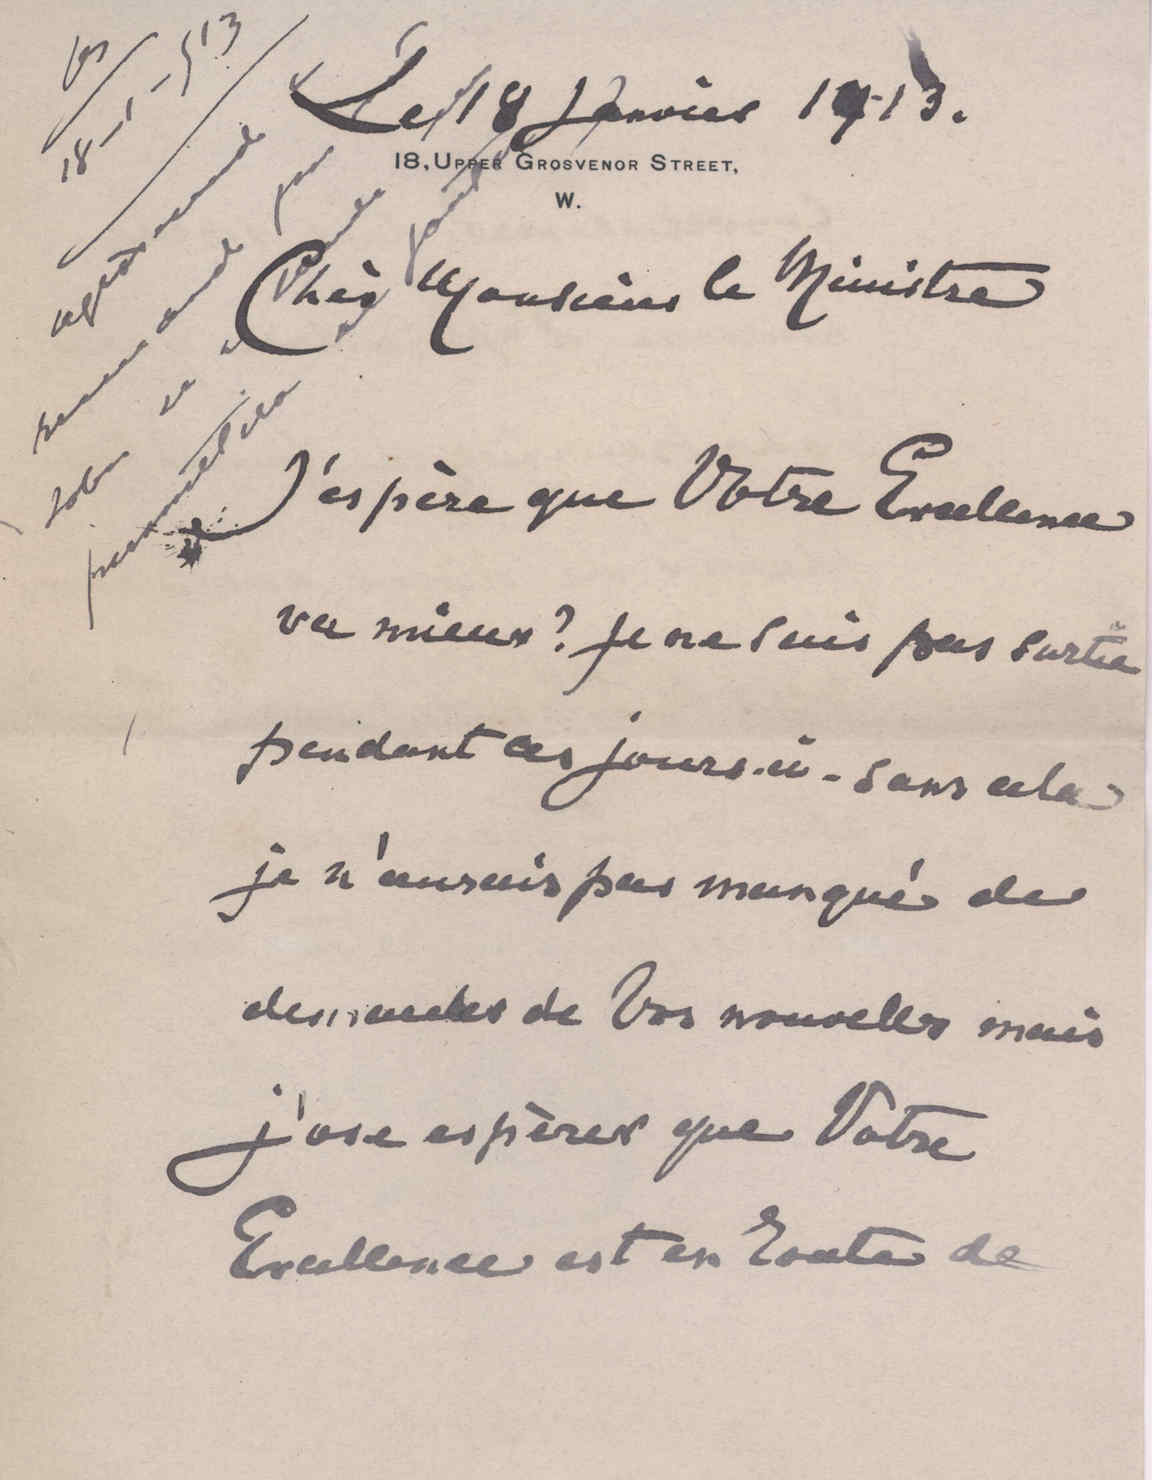 Le 18 Janvier 1913.
18, UPPER GROSVENOR STREET,
W.
Chèr Monsieur le Ministre
J'espère que Votre Excellence
va mieux? Je ne suis pas sortie
pendant ces jours-ci - sans cela
je n'aurais pas manqué de
demander de Vos nouvelles mais
j'ose espèrer que Votre
Excellence est en route de
18-1-913